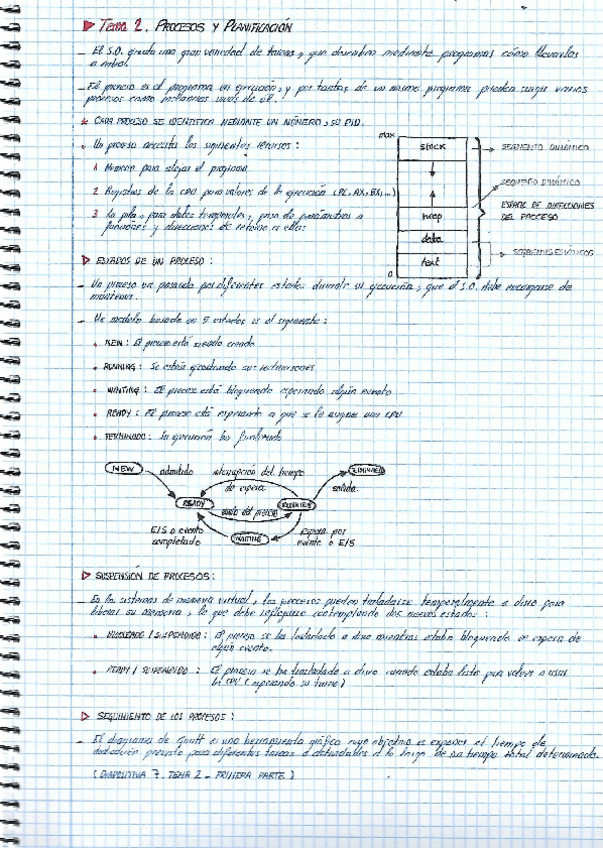 Tema 2. PROCESOS Y PLANIFICACIÓN
_ El S.O. ejecuta una gran variedad de tareas, que describen mediante programas cómo llevarlas
a cabo.
_ El proceso es el programa en ejecución, y por tanto, de un mismo programa pueden surgir varios
procesos como instancias de él.
* CADA PROCESO SE IDENTIFICA MEDIANTE UN NÚMERO, SU PID.
Un proceso necesita los siguientes recursos:
1. Memoria para alojar el programa
2. Registros de la CPU para valores de la ejecución (PC, AX, BX, ...)
3. La pila, para datos temporales, paso de parámetros a
funciones y direcciones de retorno a ellas
max
stack
heap
data
text
0
SEGMENTO DINÁMICO
SEGMENTO DINÁMICO
ESPACIO DE DIRECCIONES
DEL PROCESO
SEGMENTOS ESTÁTICOS
ESTADOS DE UN PROCESO:
_ Un proceso va pasando por diferentes estados durante su ejecución, que el S.O. debe encargarse de
mantener.
_ Un modelo basado en 5 estados es el siguiente:
NEW: El proceso está siendo creado
RUNNING: Se están ejecutando sus instrucciones
WAITING: El proceso está bloqueado esperando algún evento
READY: El proceso está esperando a que se le asigne una CPU
TERMINADO: La ejecución ha finalizado
NEW
admitido
interrupción del tiempo
de espera
READY
RUNNING
salida
WAITING
E/S o evento
completado
espera por
evento o E/S
SUSPENSIÓN DE PROCESOS:
_ En los sistemas de memoria virtual, los procesos pueden trasladarse temporalmente a disco para
liberar su memoria, lo que debe reflejarse contemplando dos nuevos estados:
BLOQUEADO / SUSPENDIDO: El proceso se ha trasladado a disco mientras estaba bloqueado en espera de
algún evento.
READY / SUSPENDIDO: El proceso se ha trasladado a disco cuando estaba listo para volver a usar
la CPU (esperando su turno)
SEGUIMIENTO DE LOS PROCESOS:
_ El diagrama de Gantt es una herramienta gráfica cuyo objetivo es exponer el tiempo de
dedicación previsto para diferentes tareas o actividades a lo largo de un tiempo total determinado.
(DIAPOSITIVA 7. TEMA 2 - PRIMERA PARTE)